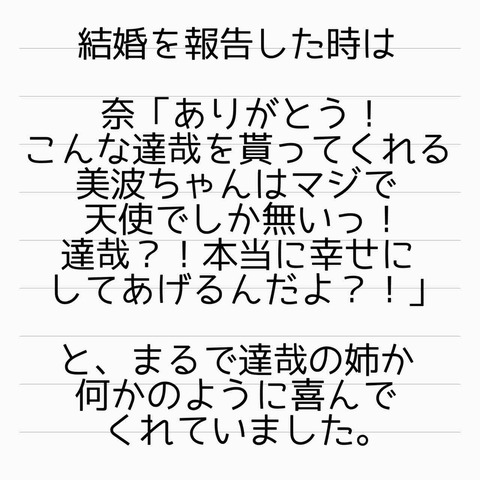 結婚を報告した時は
奈「ありがとう！
こんな達哉を貰ってくれる
美波ちゃんはマジで
天使でしか無いっ！
達哉？！本当に幸せに
してあげるんだよ？！」
と、まるで達哉の姉か
何かのように喜んで
くれていました。